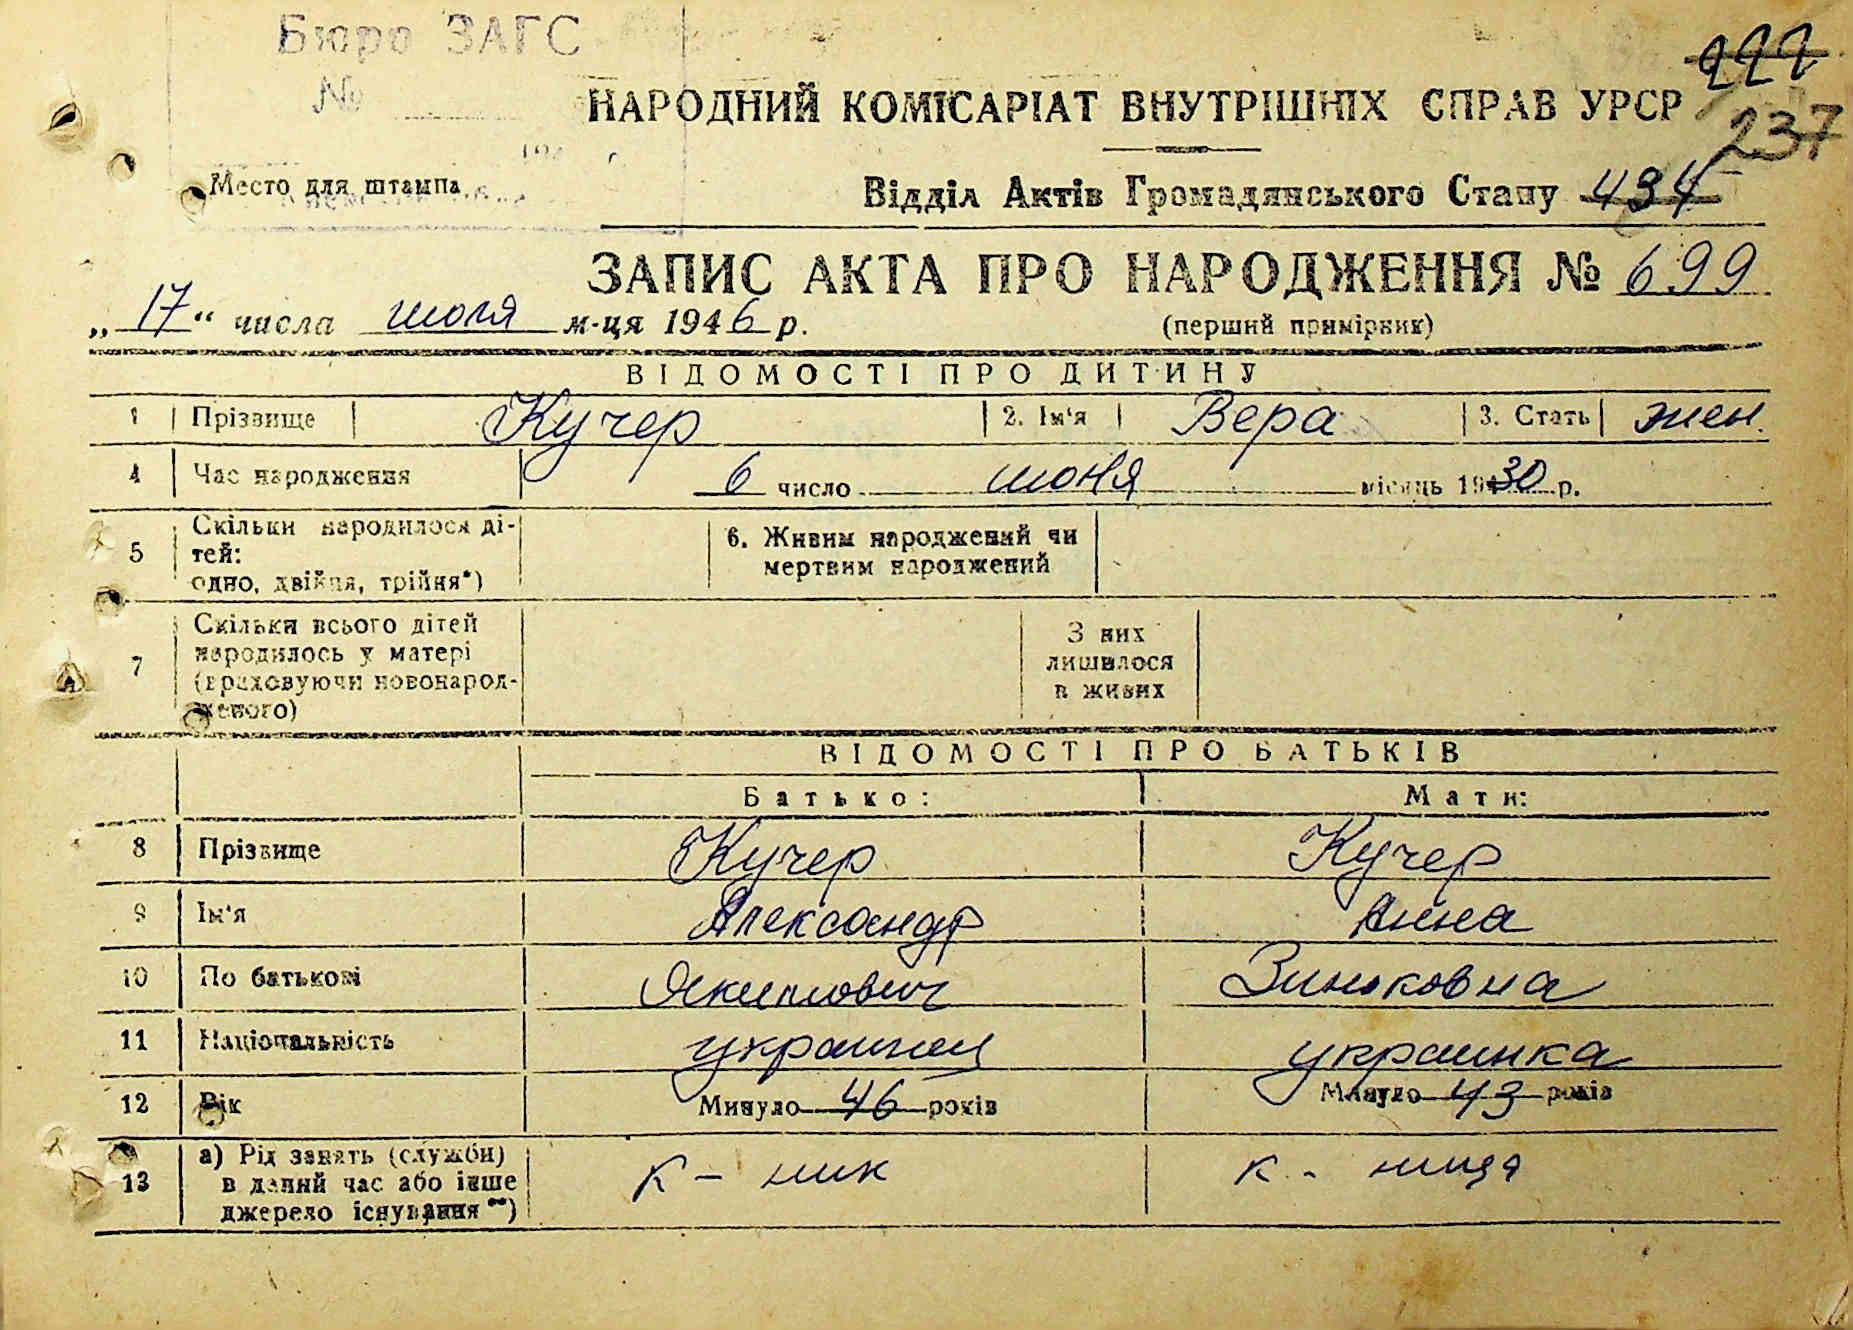 Бюро ЗАГС
№
222
НАРОДНИЙ КОМІСАРІАТ ВНУТРІШНІХ СПРАВ УРСР
237
Место для штампа
Відділ Актів Громадянського Стану 434
ЗАПИС АКТА ПРО НАРОДЖЕННЯ № 699
„17“ числа июля м-ця 1946 р. (перший примірник)
ВІДОМОСТІ ПРО ДИТИНУ
1 Прізвище Кучер 2. Ім'я Вера 3. Стать жен.
4 Час народження 6 число июня місяць 1930 р.
5 Скільки народилося ді-
тей:
одно, двійня, трійня*)
6. Живим народжений чи
мертвим народжений
7 Скільки всього дітей
народилось у матері
(враховуючи новонарод-
женого)
З них
лишилося
в живих
ВІДОМОСТІ ПРО БАТЬКІВ
Батько: Мати:
8 Прізвище Кучер Кучер
9 Ім'я Александр Анна
10 По батькові Якимович Зиньковна
11 Національність украинец украинка
12 Вік Минуло 46 років Минуло 43 років
13 а) Рід занять (служби)
в даний час або інше
джерело існування **)
к - ник к - ница